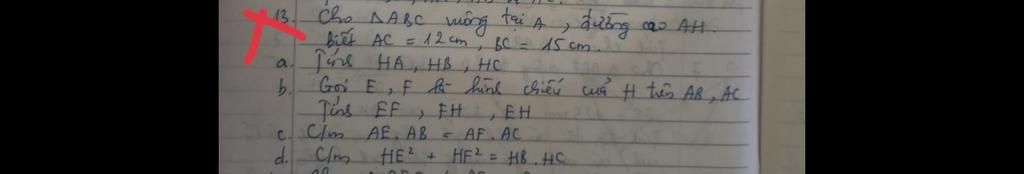 13. Cho △ABC vuông tại A, đường cao AH.
Biết AC = 12cm, BC = 15cm.
a. Tính HA, HB, HC
b. Gọi E, F là hình chiếu của H trên AB, AC
Tính EF, FH, EH
c. C/m AE.AB = AF.AC
d. C/m HE² + HF² = HB.HC